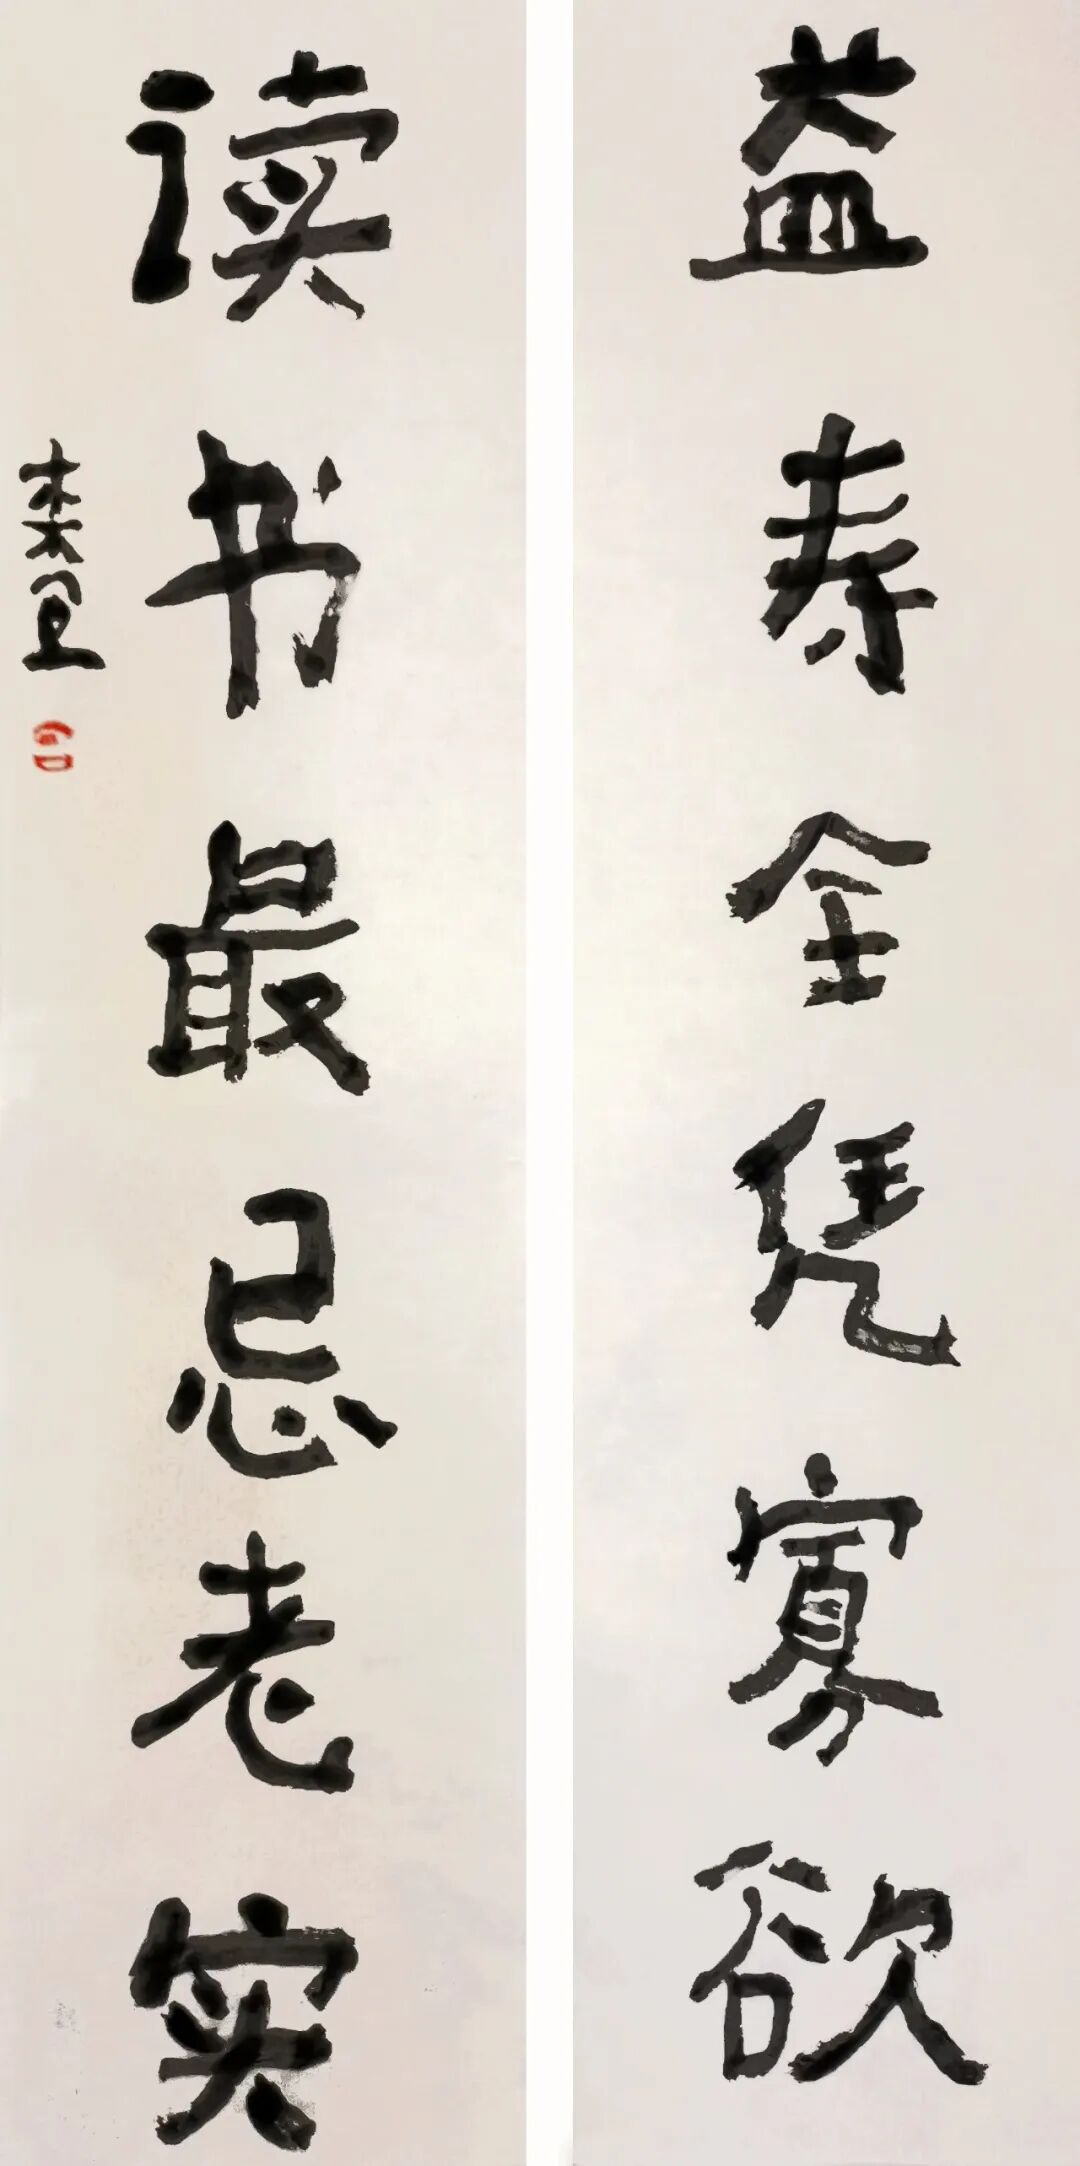 益寿全凭寡欲
读书最忌老实